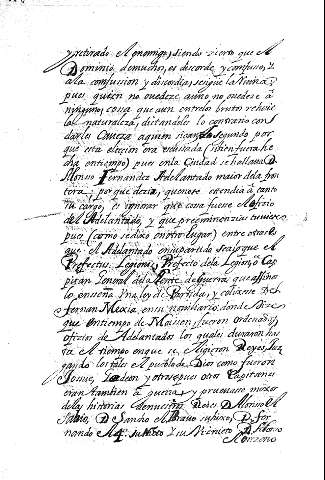 y retirado el enemigo, siendo cierto que el
Dominio, de muchos, es discorde, y confuso, y
a la confussion y discordia, se sigue la Ruina;
pues quien no ovedeze a uno no ovedeze a
ninguno, cosa que aun entre los brutos
naturaleza, dictandoles lo contrario con
darles Caveza a quien sigan, lo segundo por
que esta eleccion era escusada (si bien fuera he
cha en tiempo) pues en la Ciudad se hallava D.
Alonso Fernandez Adelantado maior de la fron
tera; porque dezir, que no se estendia a tanto
su cargo, es ignorar que cosa fuese el oficio
del Adelantado, y que preeminenzias tuviese
pues (como se dixo en otro lugar) entre otras
que el Adelantado en su partido era lo que el
Prefectus Legionis, Prefecto de la Legion, o Ca
pitan General de la Gente de Guerra, que assi
lo enseña Una ley de Partida, y
Fernan Mexia, en su nobiliario, donde dize
que en tiempo de Moisen, fueron ordenados
oficios de Adelantados los quales duraron has
ta el tiempo en que se eligieron Reyes, Juz
gando los tales el pueblo de Dios como fueron
Josue, Gedeon y otros, pues otros Capitanes
eran tambien de guerra, y pruevase mejor
de las historias de nuestros Reyes D. Alonso el
Sabio, D. Sancho el Bravo su hijo, D. Fer
nando el 4. su Nieto y su Visnieto D. Alonso
Onzeno